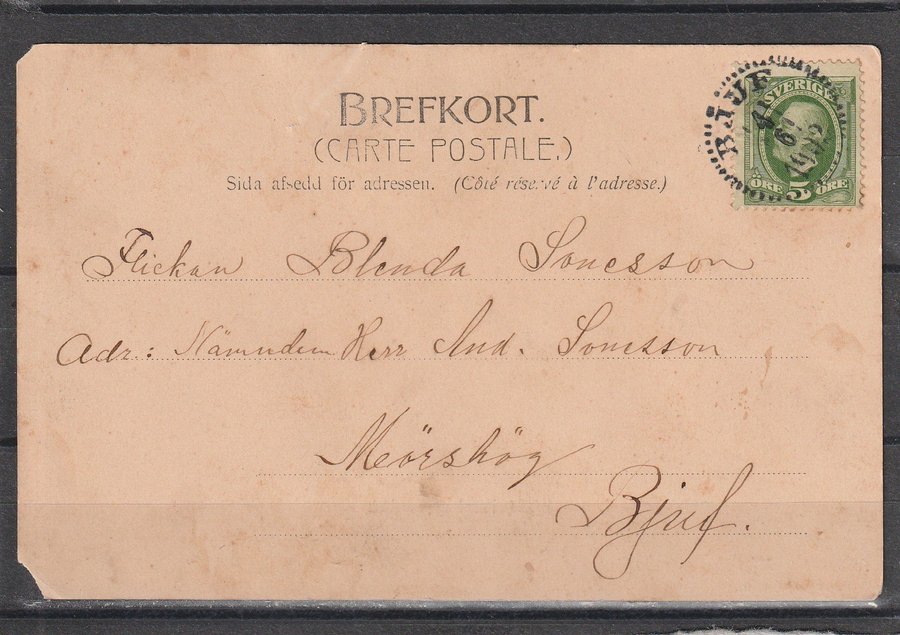 BREFKORT.
(CARTE POSTALE.)
Sida afsedd för adressen. (Côté réservé à l'adresse.)
SVERIGE
BJUF
6
ÖRE 5 ÖRE
Flickan Blenda Sonesson
Adr.: Nämndem Herr And. Sonesson
Mörshög
Bjuf.